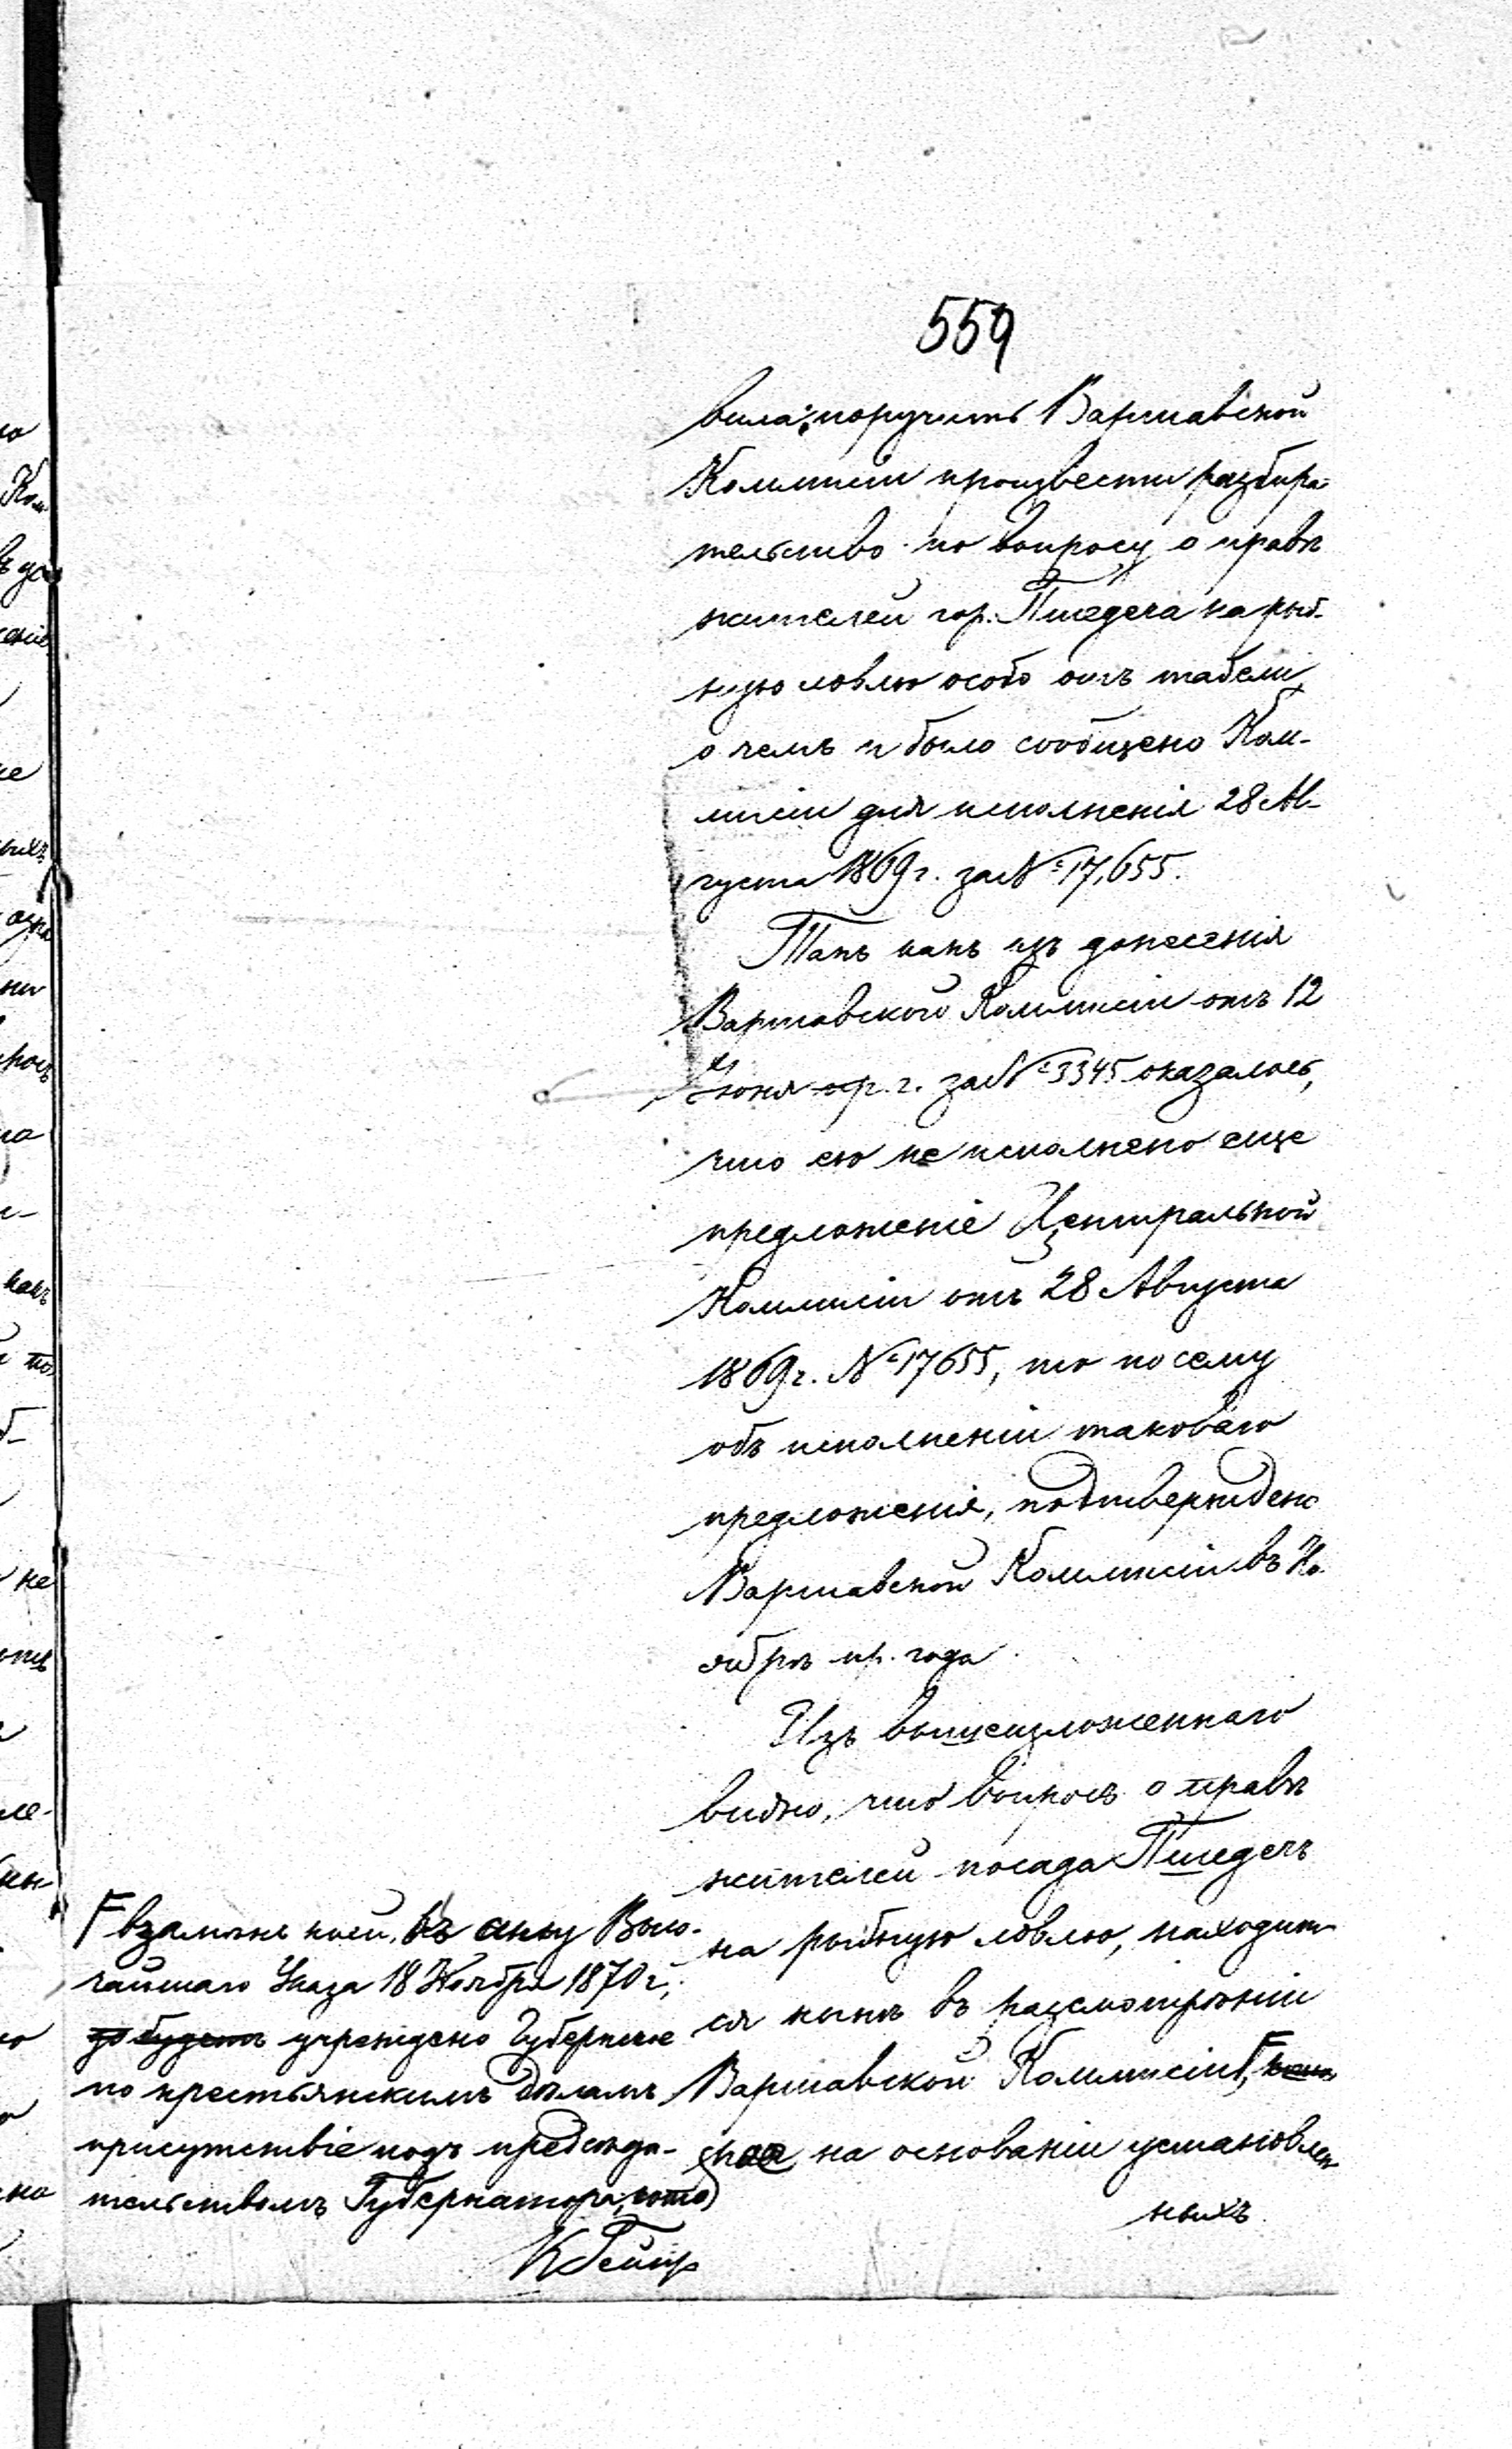 559
вила: поручить Варшавской
Коммисіи произвести разбира
тельство по вопросу о правѣ
жителей гор. Пшедеча на рыб-
ную ловлю особо отъ табели,
о чемъ и было сообщено Ком-
мисіи для исполненія 28 Ав-
густа 1869 г. за № 17,655.
Такъ какъ изъ донесенія
Варшавской Коммисіи отъ 12
Іюня пр. г. за № 3345 оказалось,
что ею не исполнено еще
предложеніе Центральной
Коммисіи отъ 28 Августа
1869 г. № 17655, то посему
объ исполненіи таковаго
предложенія, подтверждено
Варшавской Коммисіи въ Но
ябрѣ пр. года
Изъ вышеизложеннаго
видно, что вопросъ о правѣ
жителей посада Пшедечъ
на рыбную ловлю, находит
ся нынѣ въ разсмотрѣніи
Варшавской Коммисіи,
рая на основаніи установлен
ныхъ
взамѣнъ коей, въ силу Высо-
чайшаго Указа 18 Ноября 1870 г.,
будетъ учреждено Губернское
по крестьянскимъ дѣламъ
присутствіе подъ предсѣда-
тельствомъ Губернатора, кото